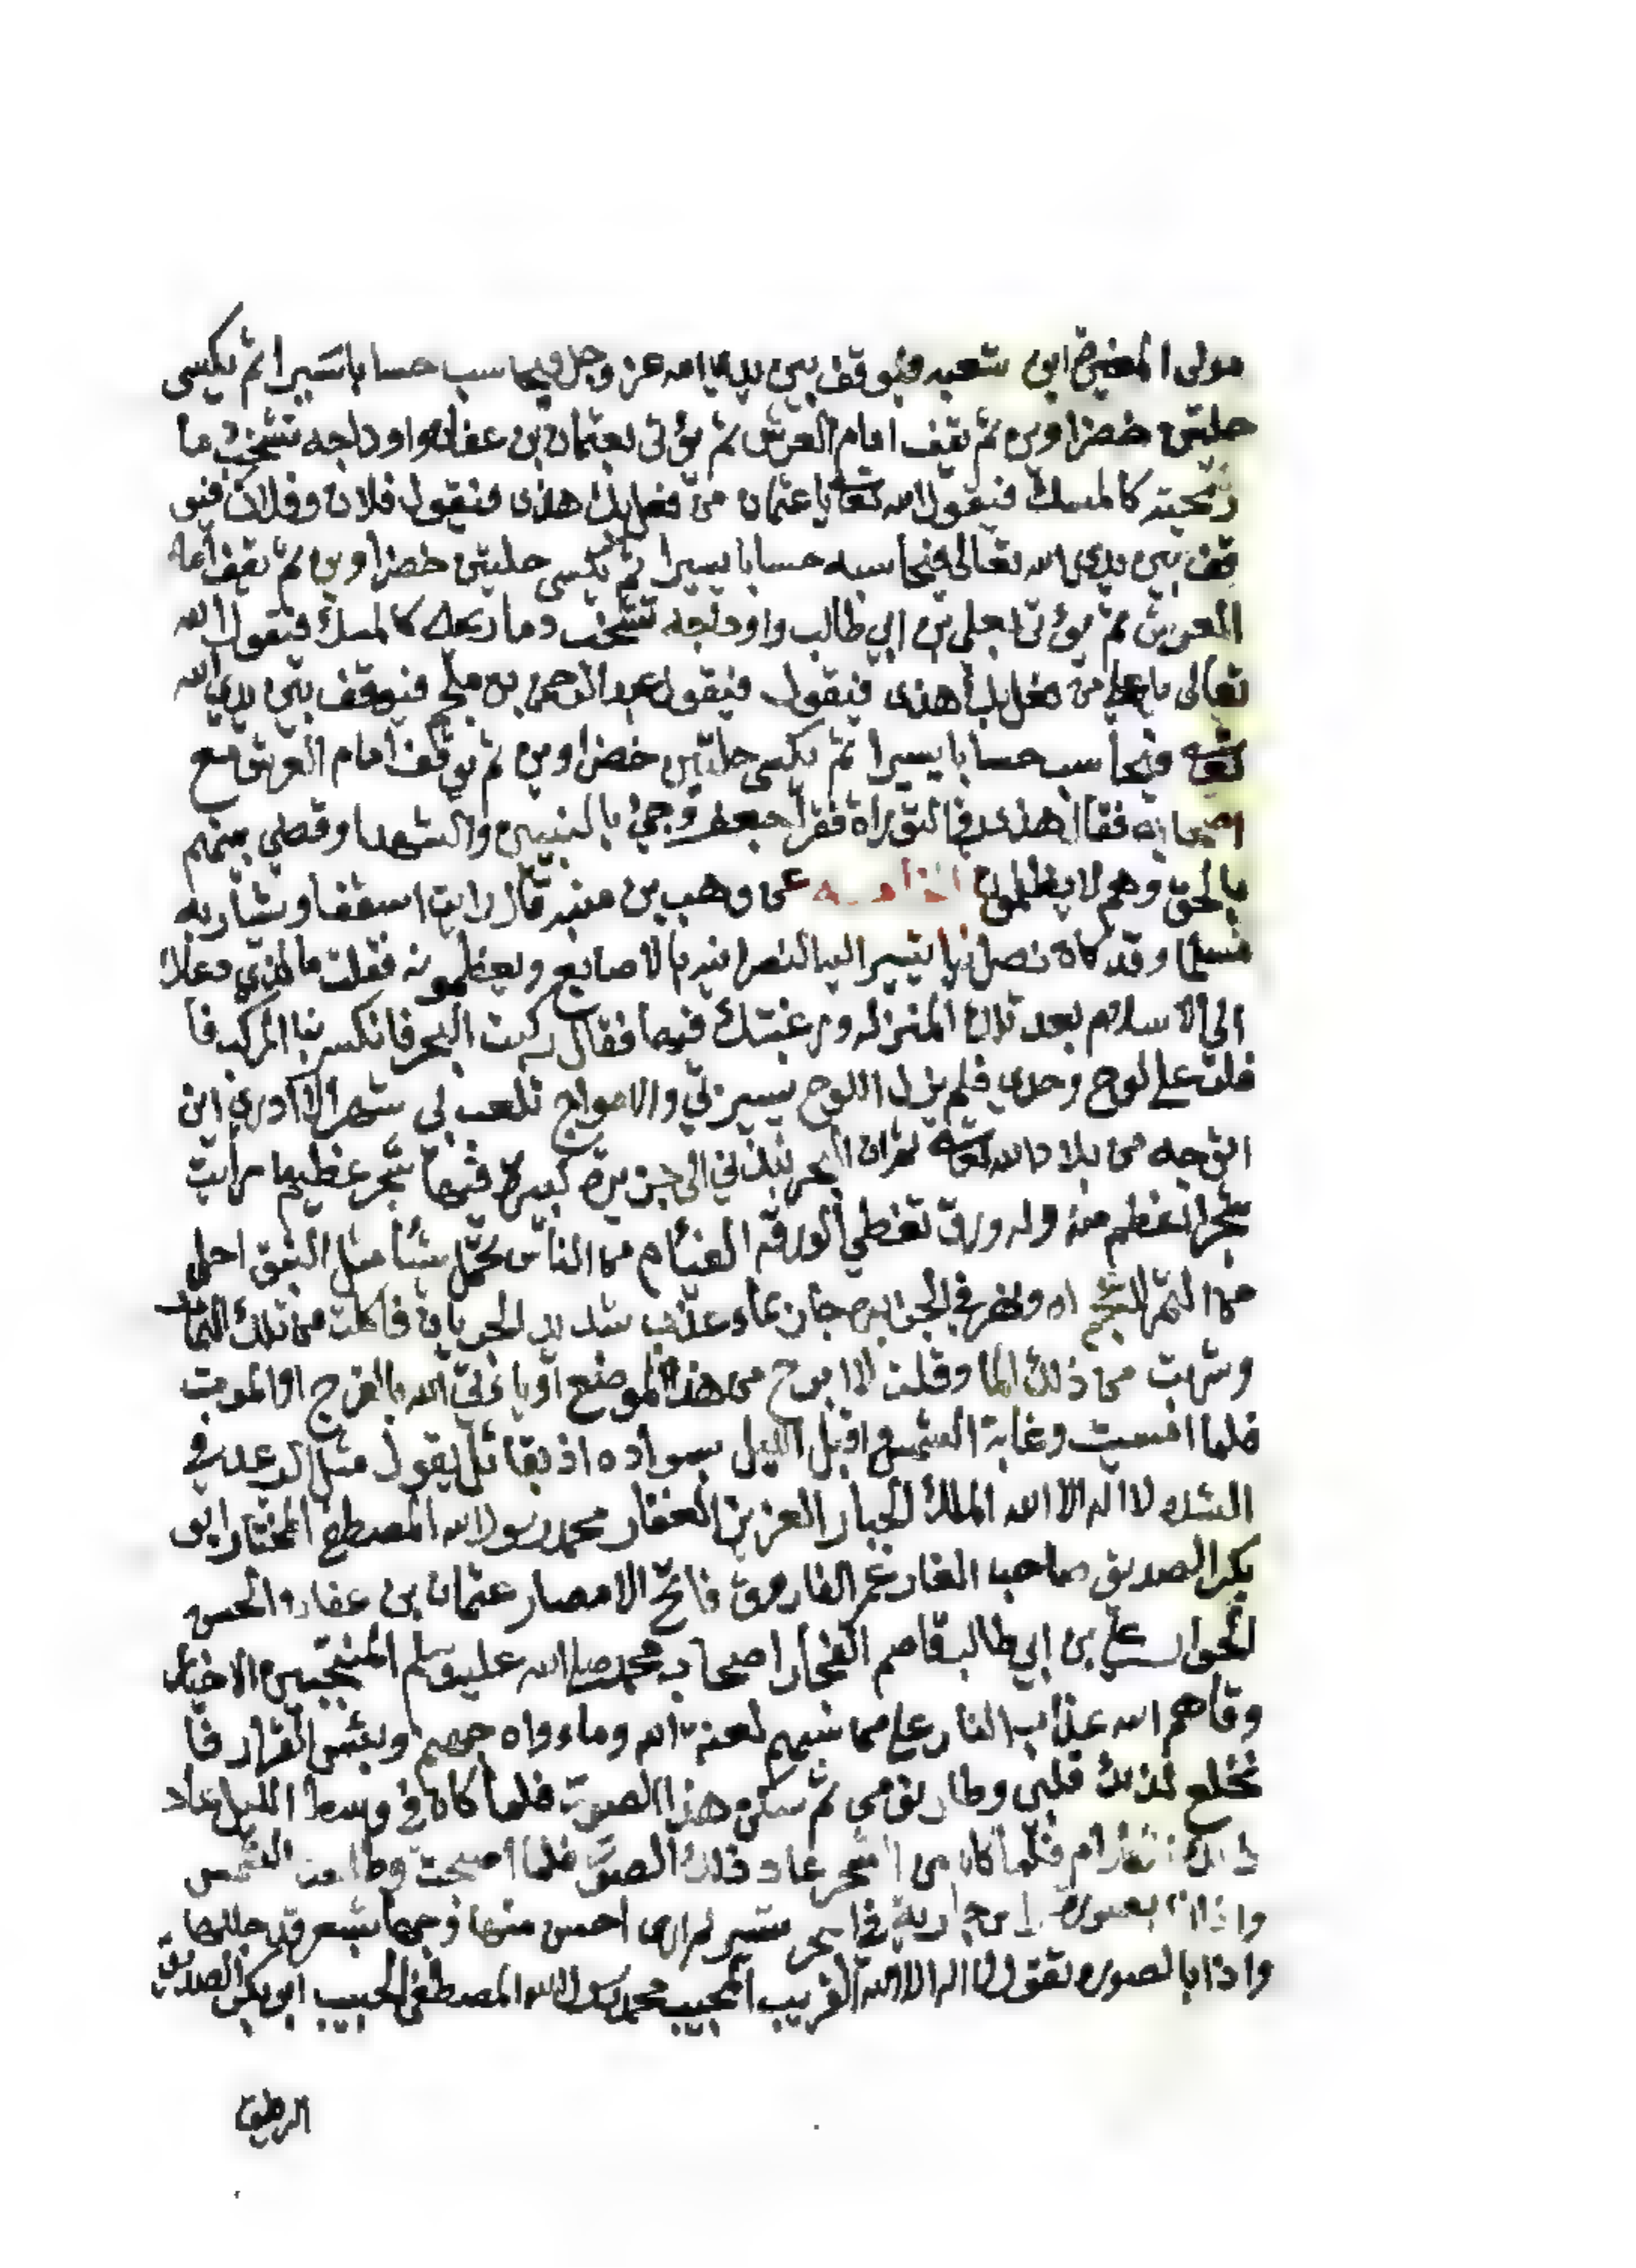 مولى المغيرة ابن شعبه فيوقف بين يدي الله عز وجل فيحاسب حسابا يسيرا ثم يكسى
حلتين خضراوين ثم يقف امام العرش ثم يؤتى بعثمان بن عفان واوداجه تشخب دما
ريحته كالمسك فيقول الله تعا يا عثمان من فعل بك هذى فيقول فلان وفلان فيو
قف بين يدي الله تعالى فيحاسبه حسابا يسيرا ثم يكسى حليتين خضراوين ثم يقف امام
العرش ثم يؤتى بعلي بن ابي طالب واوداجه تشخب دما ريحه كالمسك فيقول الله
تعالى يا علي من فعل بك هذى فيقول فيقول عبد الرحمن بن ملجم فيوقف بين يدي الله
تعا فيحاسب حسابا يسيرا ثم يكسى حلتين خضراوين ثم يوقف امام العرش مع
اصحابه فقال هذى في التوراة فقرا جعفر وجئ بالنبيين والشهدا وقضي بينهم
بالحق وهم لا يظلمون عن وهب بن منبه قال رايت اسقفا ويشار به
مسلما وقد كان نصرانيا يشير اليه النصرانيه بالاصابع ويعظمونه فقلت ما الذي دعاك
الى الاسلام بعد تلك المنزله ورغبتك فيها فقال ركبت البحر فانكسر بنا المركب فا
فلت على لوح وحدي فلم يزل اللوح يسير بي والامواج تلعب بي شهرا لا ادري اين
اتوجه من بلاد الله تعا ثم ان البحر نبذني الى جزيرة كبيرة فيها شجر عظيم ما رايت
شجرا اعظم منه وله ورق تغطي الورقه الفئام من الناس تحمل شيئا مثل النبق احلى
من التمر ونهر في الجزيره جار بماء عذب شديد الجريان فاكلت من تلك الثمار
وشربت من ذلك الما وقلت لا ابرح من هذا الموضع او ياتي الله بالفرج او الموت
فلما امسيت وغابة الشمس واقبل الليل بسواده اذ بقائل يقول مثل الرعد في
الشده لا اله الا الله الملك الجبار العزيز الغفار محمد رسول الله المصطفى المختار ابو
بكر الصديق صاحب الغار عمر الفاروق فاتح الامصار عثمان بن عفان الحسن
الجوار علي بن ابي طالب قاصم الفجار اصحاب محمد صلى الله عليه وسلم المنتجبين الاخيار
وقاهم الله عذاب النار على من سبهم لعنة الله وماواه جهنم وبئس القرار فا
نخلع لذلك قلبي وطار نومي ثم سكن هذا الصوت فلما كان في وسط الليل عاد
فلما كان من السحر عاد ذلك الصوت فلما اصبحت وطلعت الشمس
واذا بصورة راس جارية في البحر تسير لم ارى احسن منها وجها بشعر قد جللها
واذا بالصورة تقول لا اله الا الله القريب المجيب محمد رسول الله المصطفى الحبيب ابو بكر الصديق
الرفيق